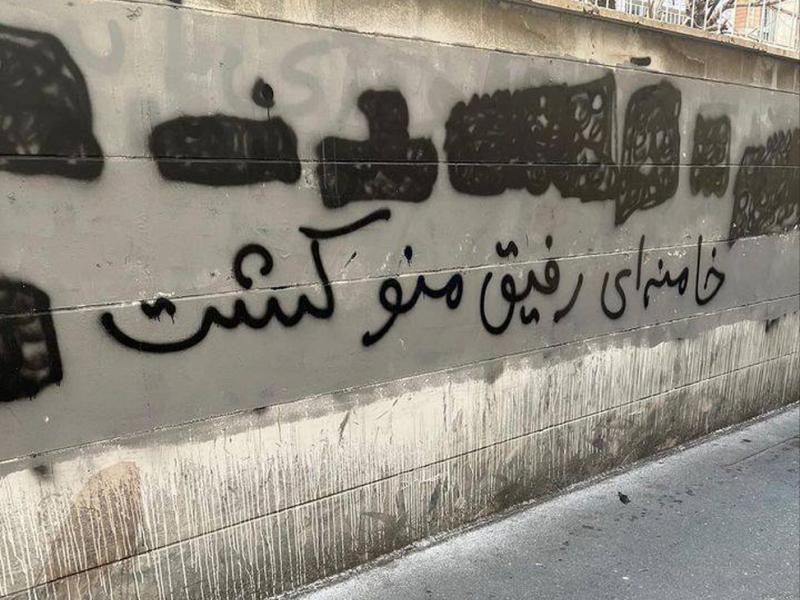 خامنه‌ای رفیق منو کشت